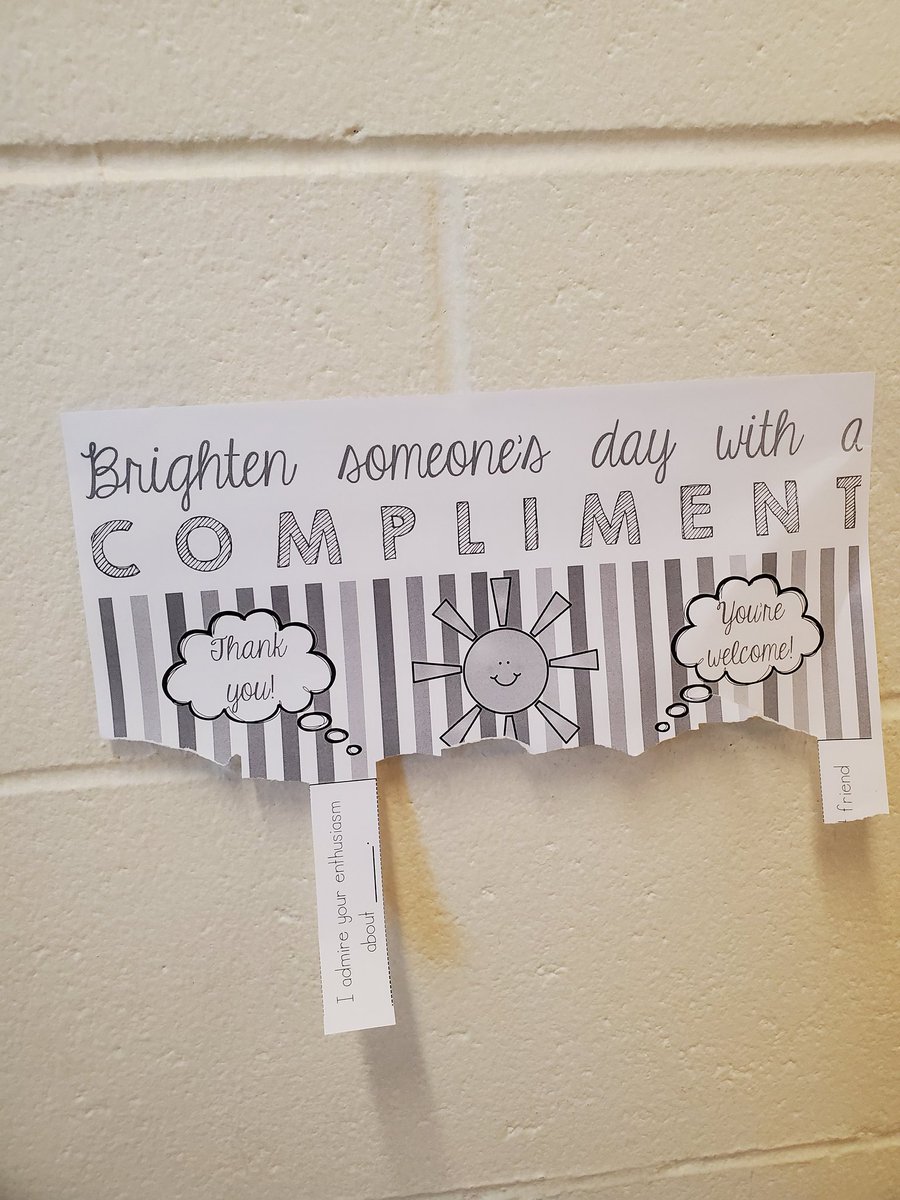 Brighten someone's day with a
COMPLIMENT
Thank
you!
You're
welcome!
I admire your enthusiasm
about ____.
friend